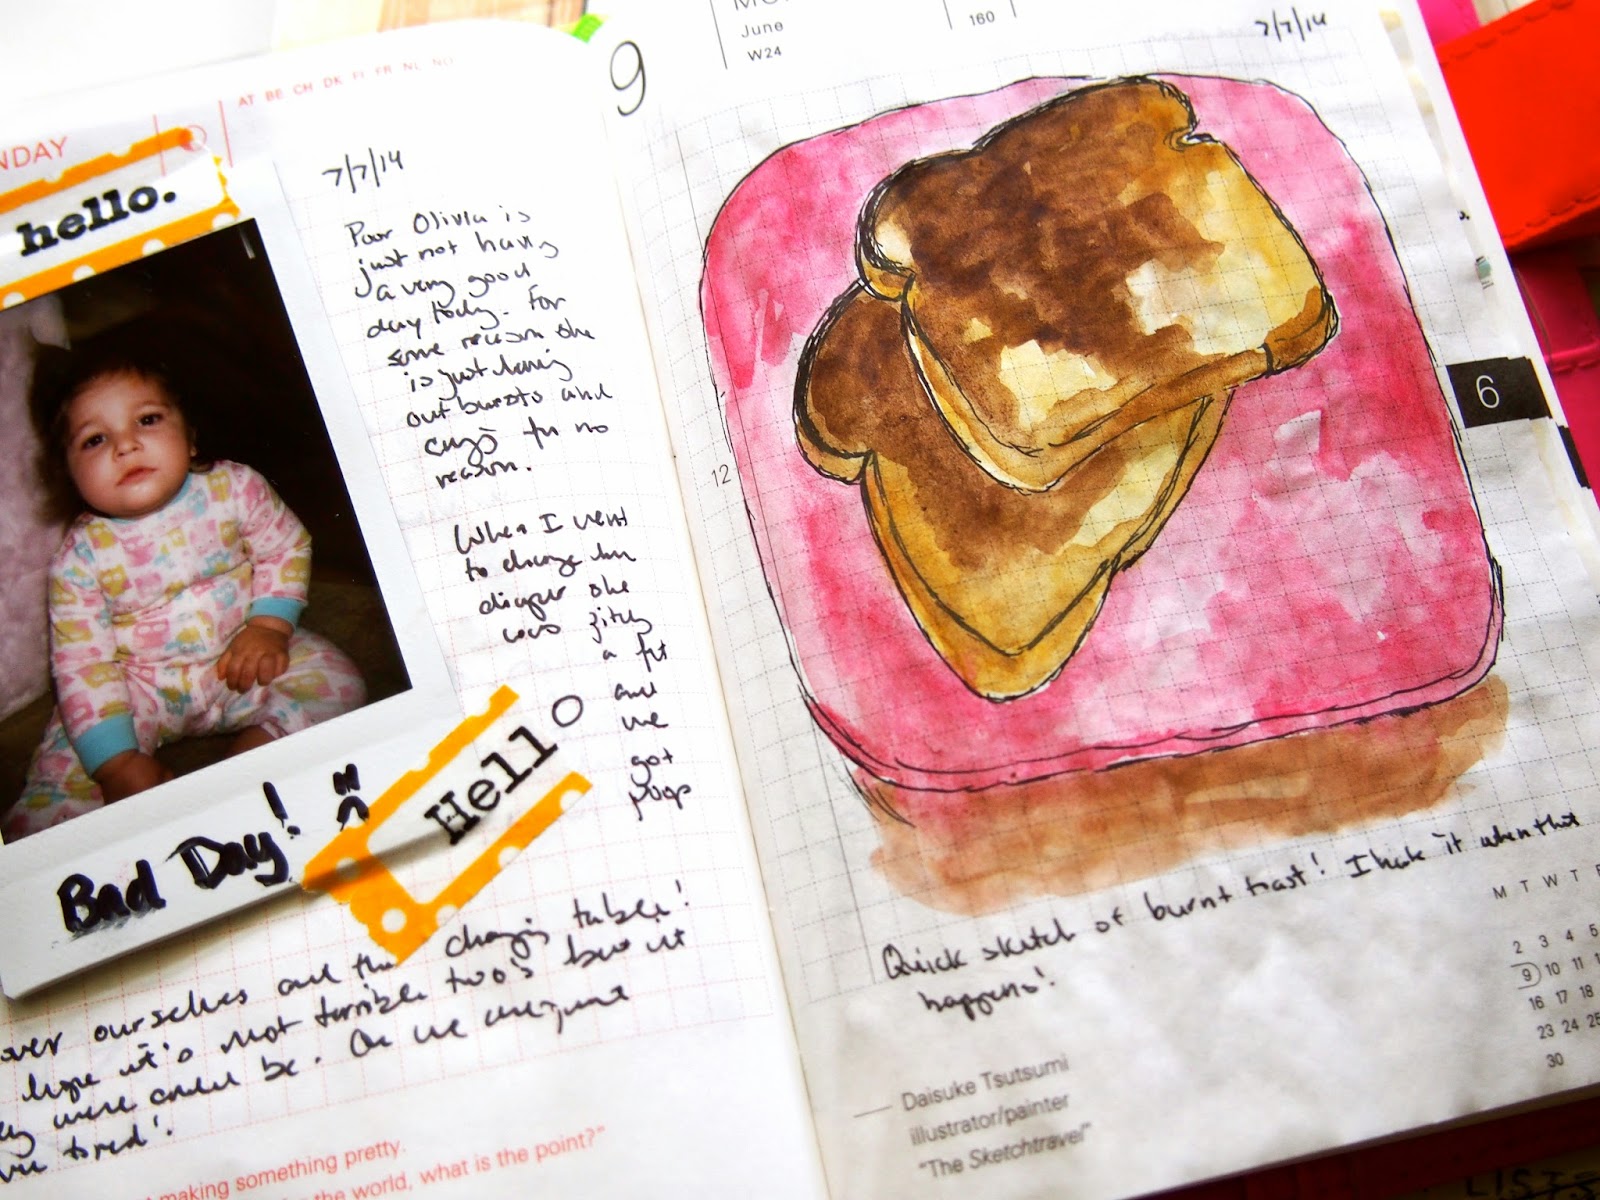 NDAY
AT BE CH DK FI FR NL NO
hello.
7/7/14
Poor Olivia is
just not having
a very good
day today. For
some reason she
is just having
out bursts and
crying for no
reason.
When I went
to change her
diaper she
was
a fit
and
we
got
poop
Bad Day!
Hello
over ourselves and the changing table!
hope it's not terrible two's but it
were could be. Or we are just
tired!
making something pretty.
the world, what is the point?"
9
June
W24
160
7/7/14
12
6
Quick sketch of burnt toast! I hate it when that
happens!
Daisuke Tsutsumi
illustrator/painter
"The Sketchtravel"
M T W T F
2 3 4 5
9 10 11
16 17 18
23 24 25
30
LISTS